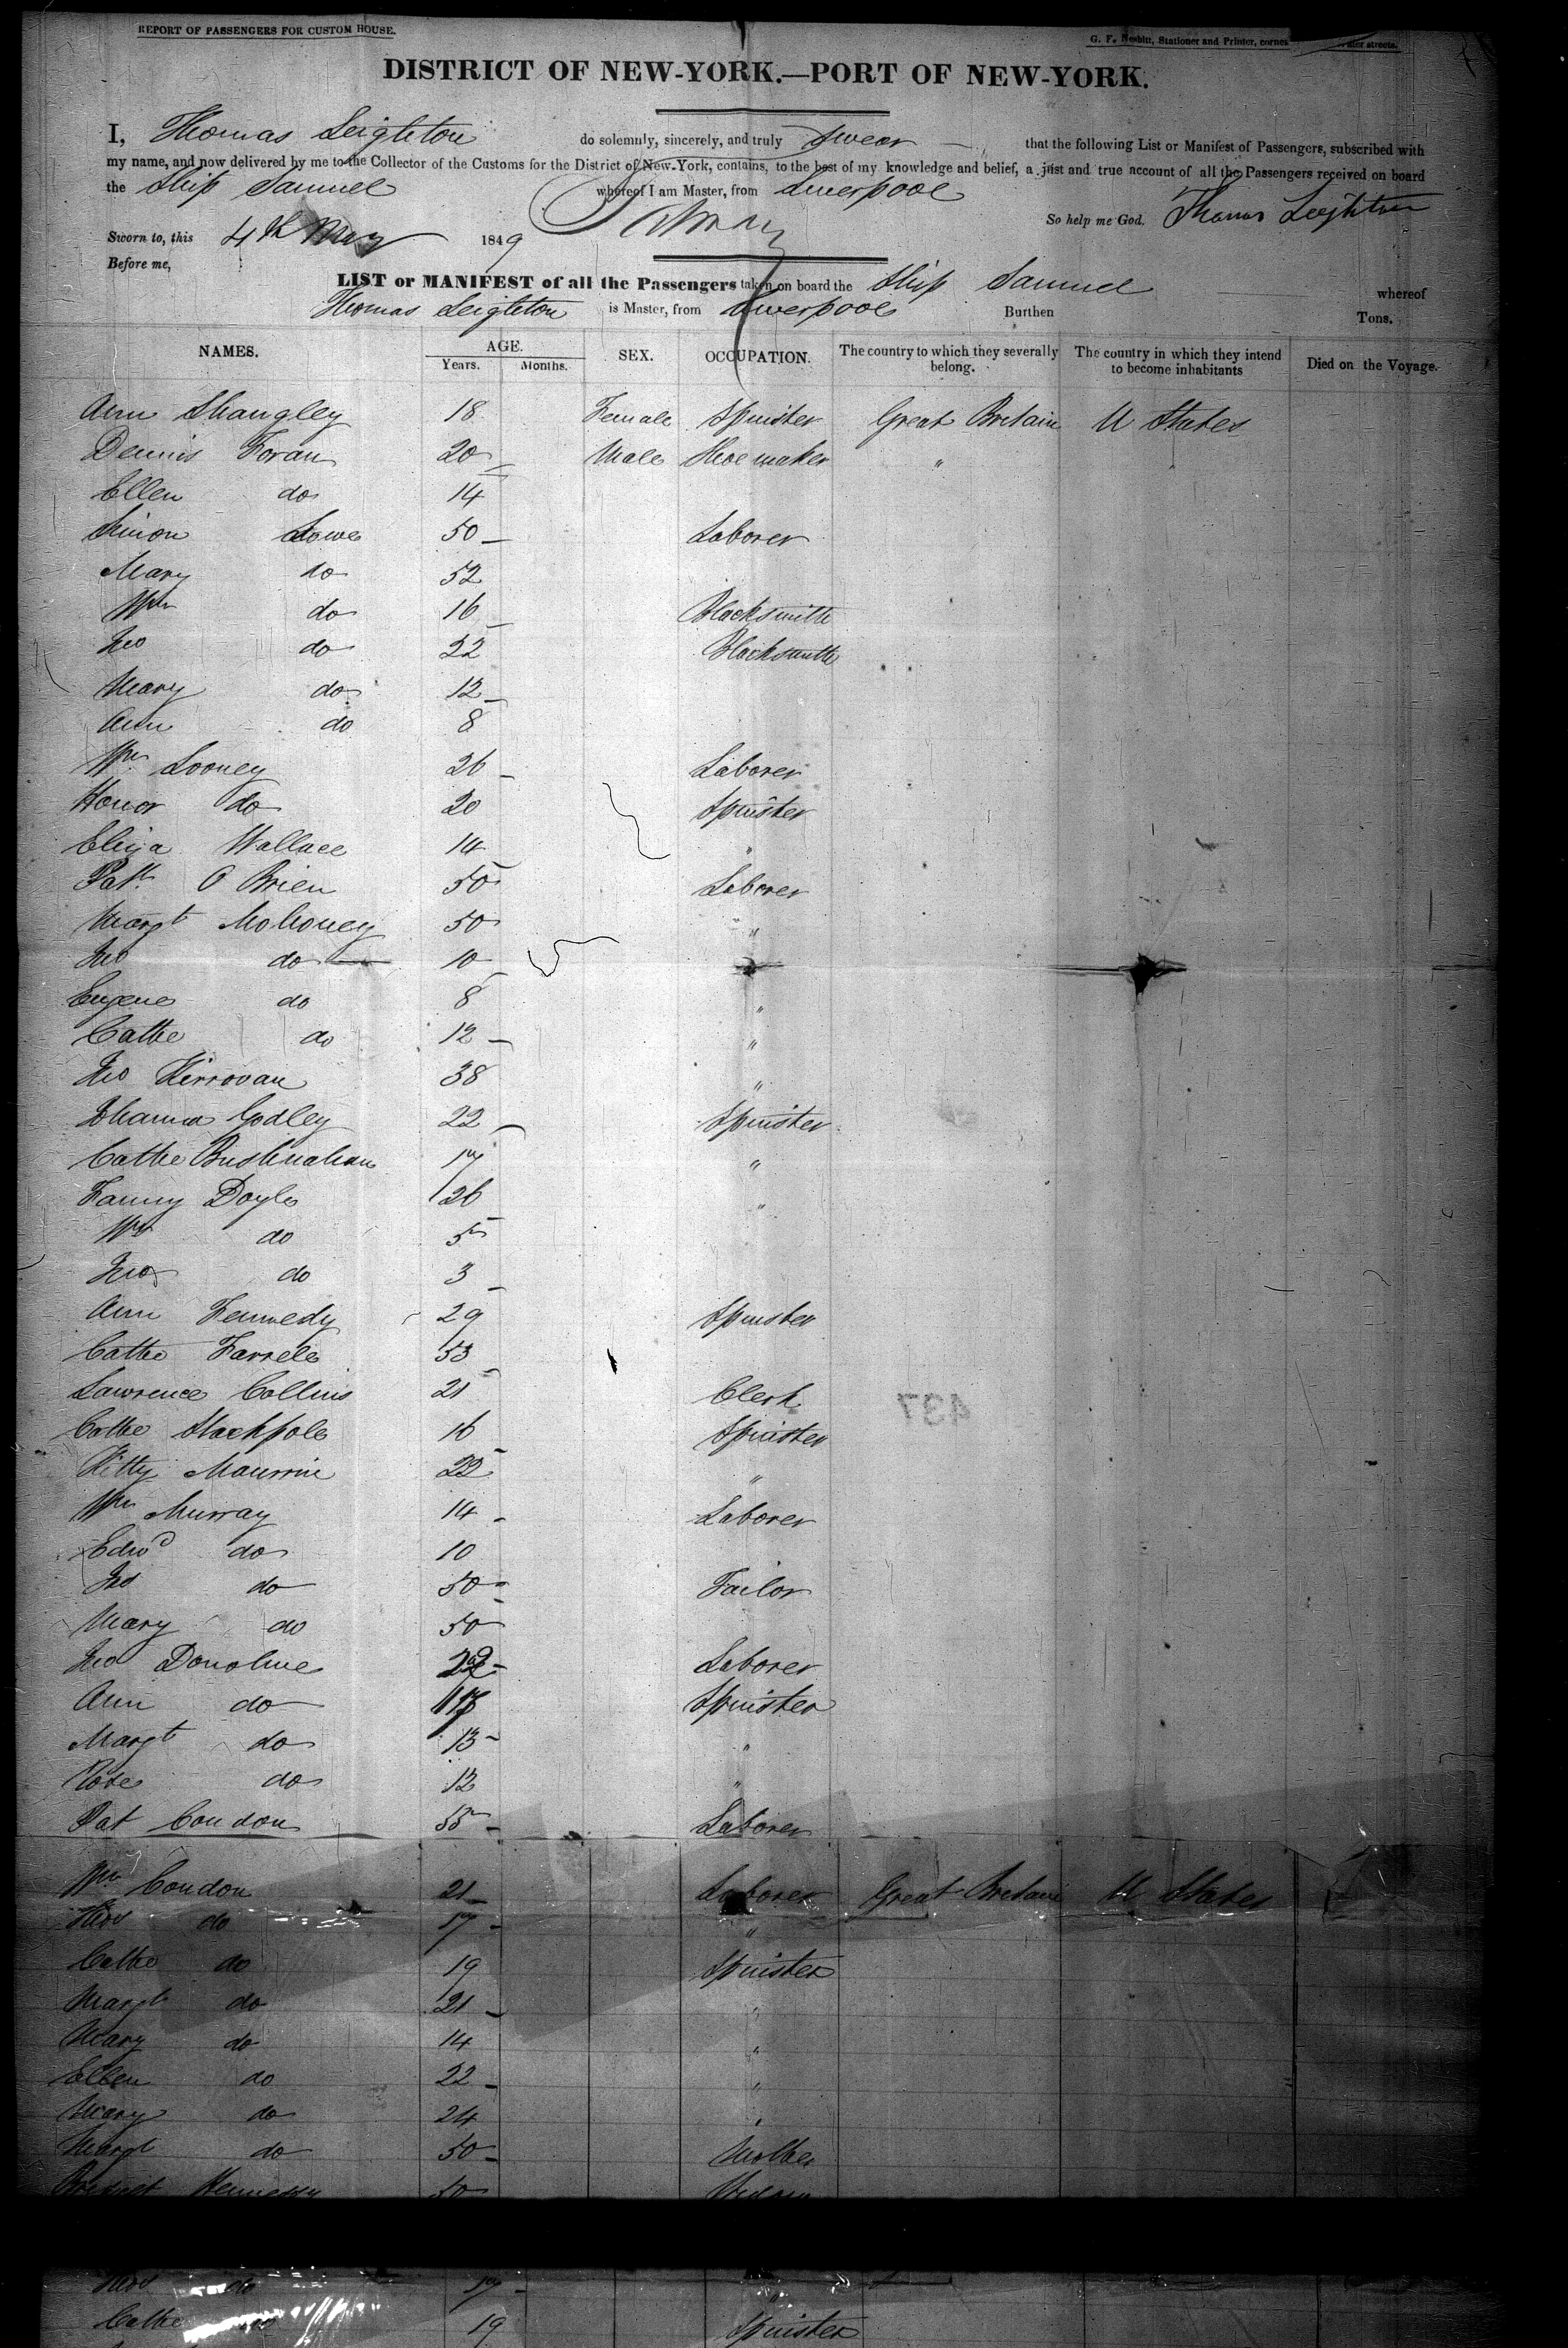 REPORT OF PASSENGERS FOR CUSTOM HOUSE.
G. F. Nesbitt, Stationer and Printer, corner Water streets.
DISTRICT OF NEW-YORK.—PORT OF NEW-YORK.
I, Thomas Leighton do solemnly, sincerely, and truly swear that the following List or Manifest of Passengers, subscribed with
my name, and now delivered by me to the Collector of the Customs for the District of New-York, contains, to the best of my knowledge and belief, a just and true account of all the Passengers received on board
the Ship Samuel whereof I am Master, from Liverpool
So help me God. Thomas Leighton
Sworn to, this 4th May 1849
Before me,
LIST or MANIFEST of all the Passengers taken on board the Ship Samuel whereof
Thomas Leighton is Master, from Liverpool Burthen Tons.
NAMES. AGE. Years. Months. SEX. OCCUPATION. The country to which they severally belong. The country in which they intend to become inhabitants Died on the Voyage.
Ann Shangley 18 Female Spinster Great Britain U States
Dennis Foran 20 Male Shoe maker "
Ellen do 14
Simon Lowe 50 Laborer
Mary do 52
Wm do 16 Blacksmith
Jno do 22 Blacksmith
Mary do 12
Ann do 8
Wm Looney 26 Laborer
Honor do 20 Spinster
Eliza Wallace 14 "
Patk O Brien 50 Laborer
Margt Mohoney 50 "
Jno do 10
Eugene do 8 "
Cathe do 12 "
Jno Kirrovan 38 "
Johanna Godley 22 Spinster
Cathe 17 "
Fanny Doyle 26 "
Wm do 5
Jno do 3
Ann Kennedy 29 Spinster
Cathe Farrele 53
Lawrence Collins 21 Clerk
437
Cathe Stackpole 16 Spinster
Kitty 22 "
Wm Murray 14 Laborer
Edwd do 10
Jno do 50 Tailor
Mary do 50
Jno Donohue Laborer
Ann do Spinster
Margt do 13 "
Rose do 12 "
Pat Condon Laborer
Wm Condon 21 Laborer Great Britain U States
do 17 "
Cathe do 19 Spinster
Margt do 21 "
Mary do 14 "
Ellen do 22 "
Mary do 24 "
Margt do 50 Mother
Hennessy 50
do 17
Cathe 19 Spinster